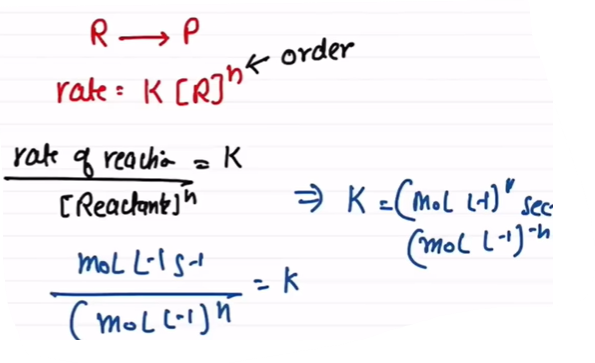 R → P
rate = K [R]^n ← order
rate of reactio = K
[Reactants]^n
⇒ K = (moL L-1)^1 sec
(moL L-1)^-n
moL L-1 s-1 = K
(moL L-1)^n